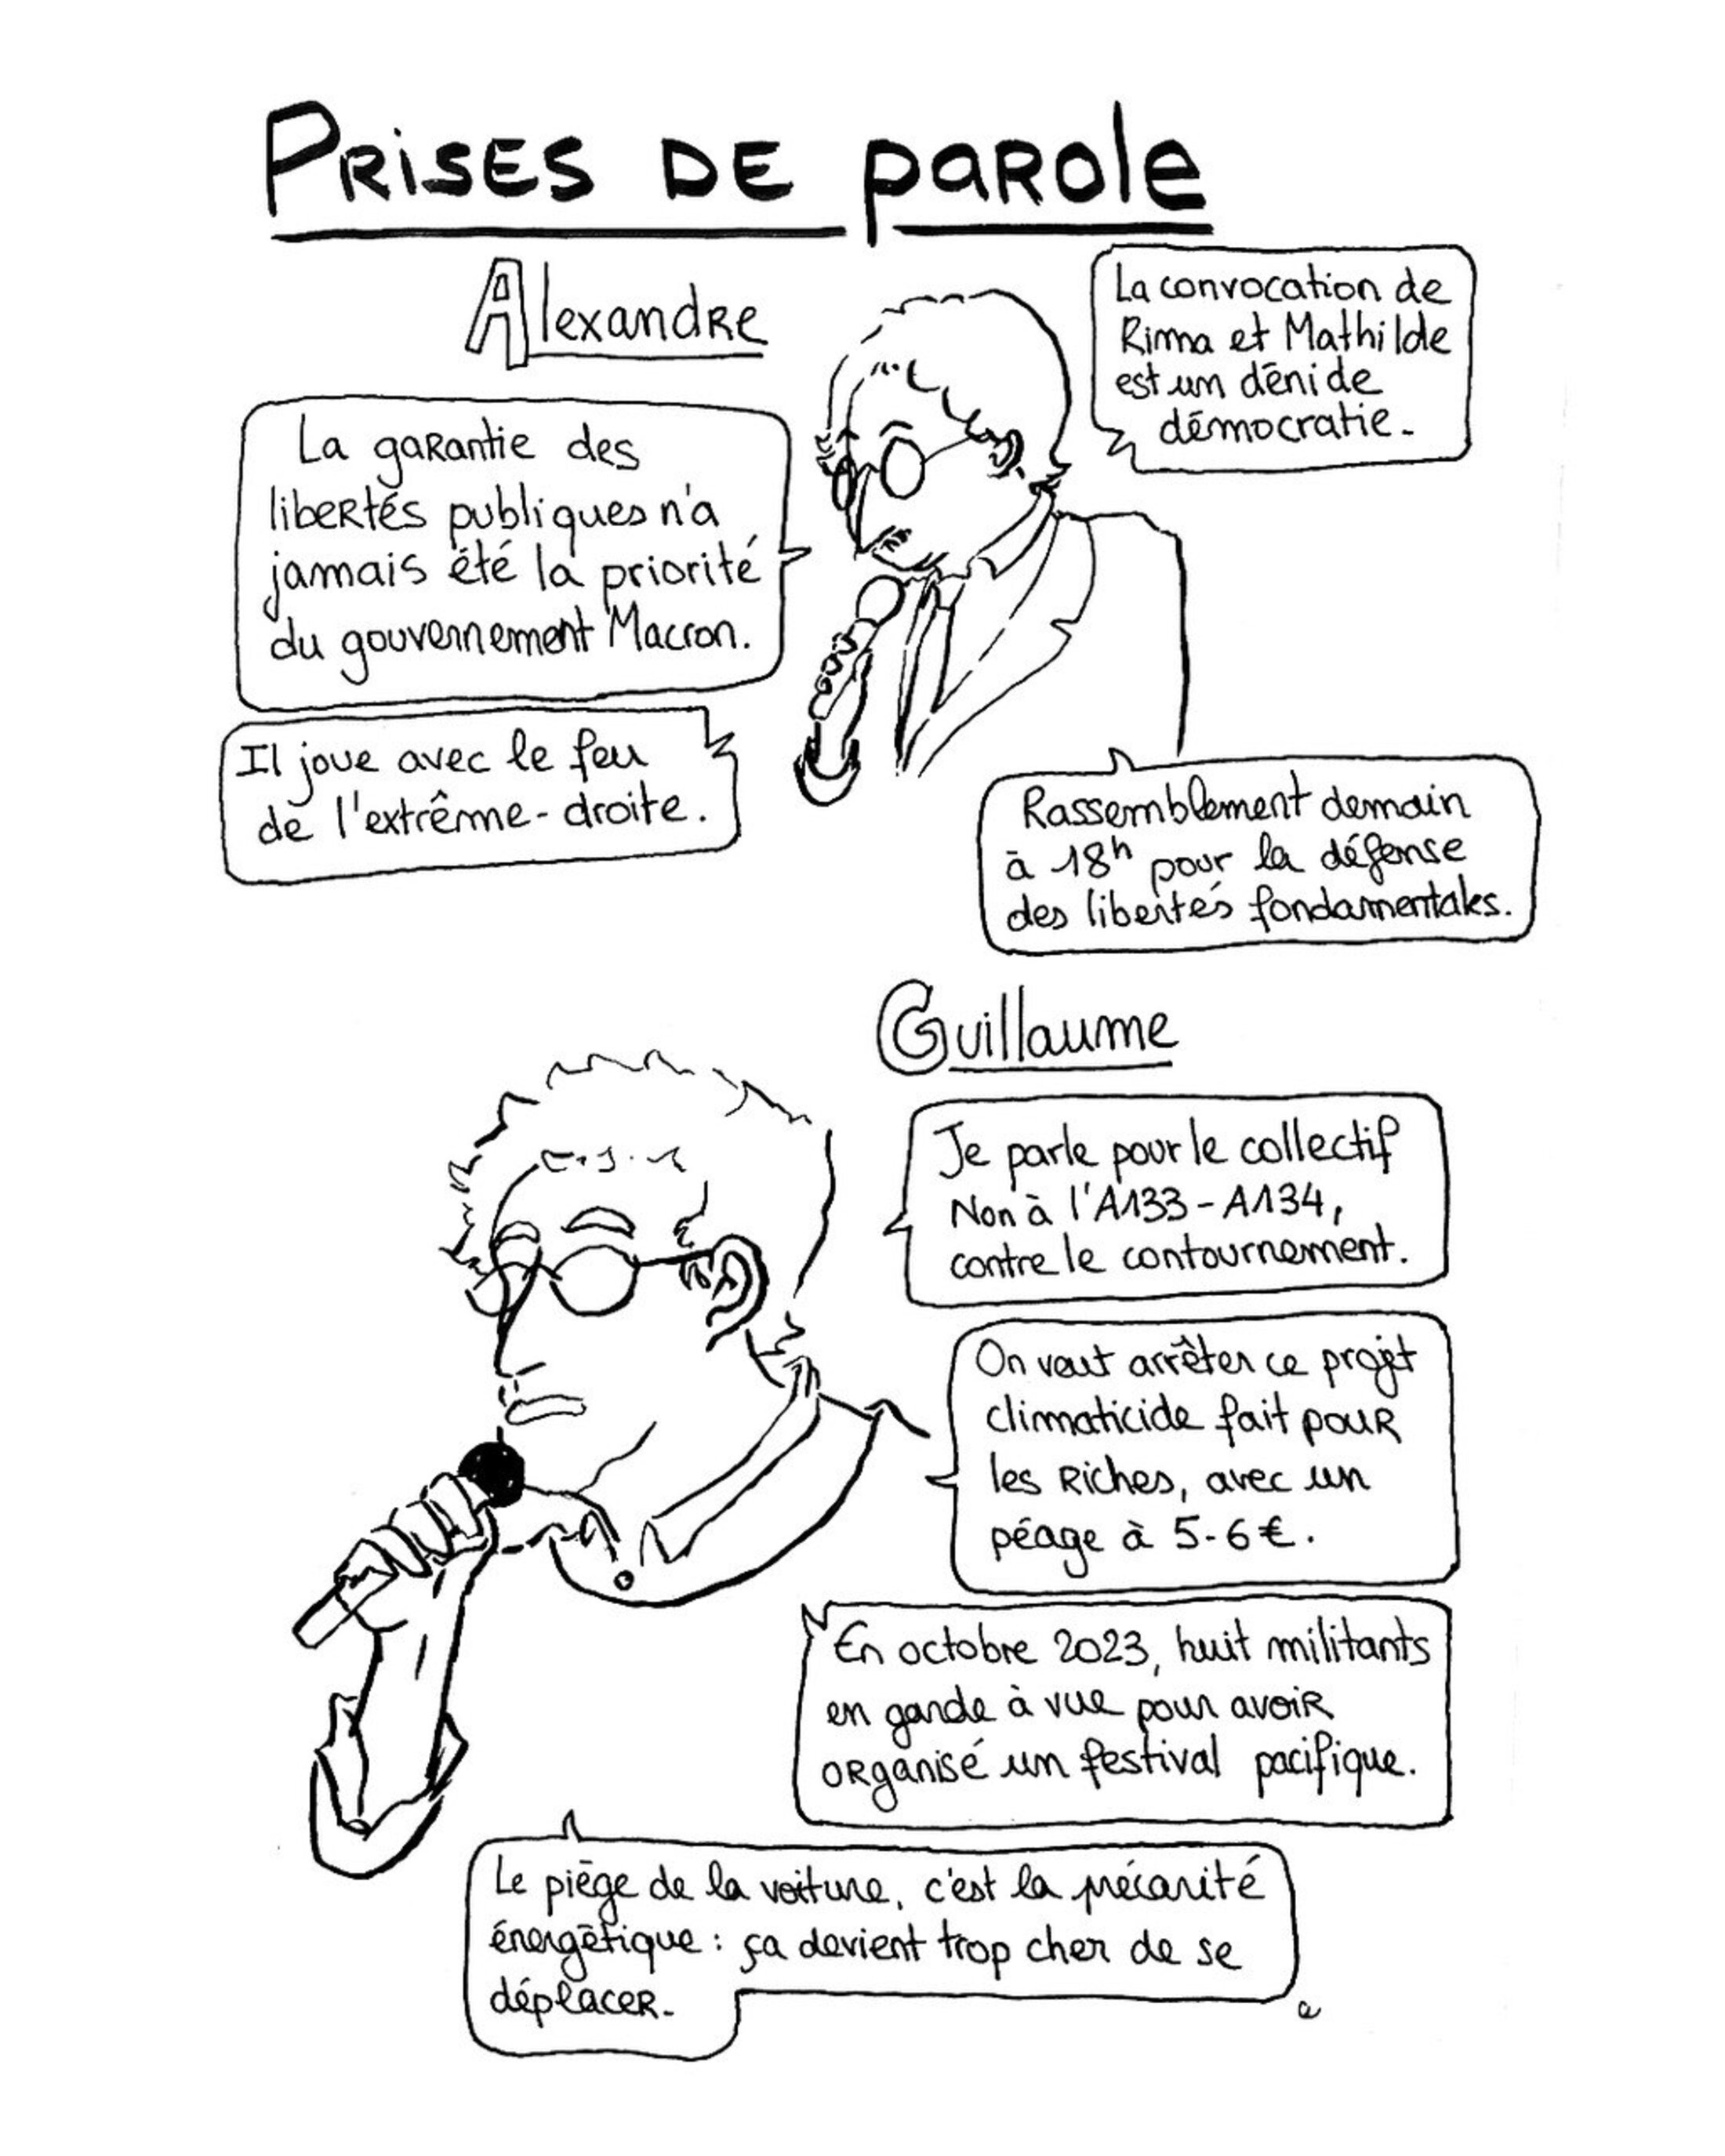 PRISES DE PAROLE
Alexandre
La convocation de
Rima et Mathilde
est un déni de
démocratie.
La garantie des
libertés publiques n'a
jamais été la priorité
du gouvernement Macron.
Il joue avec le feu
de l'extrême-droite.
Rassemblement demain
à 18h pour la défense
des libertés fondamentales.
Guillaume
Je parle pour le collectif
Non à l'A133-A134,
contre le contournement.
On veut arrêter ce projet
climaticide fait pour
les riches, avec un
péage à 5-6€.
En octobre 2023, huit militants
en garde à vue pour avoir
organisé un festival pacifique.
Le piège de la voiture, c'est la précarité
énergétique : ça devient trop cher de se
déplacer.